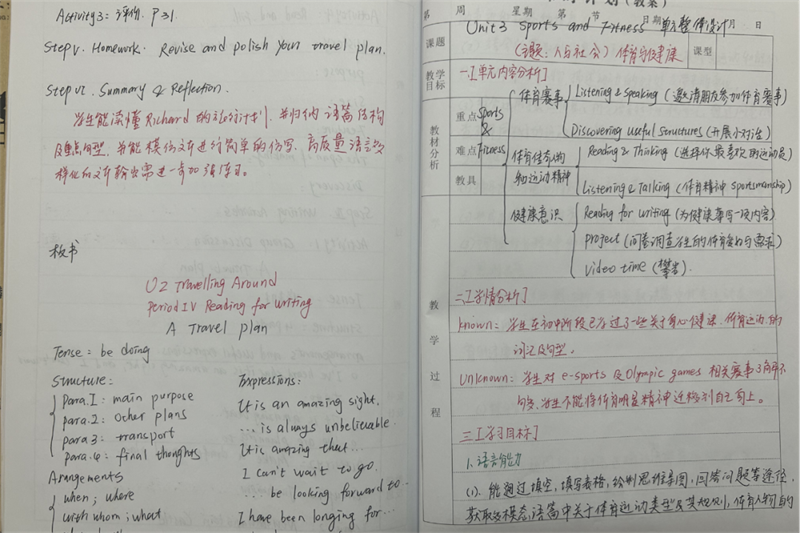 Activity3: 评价. P31.
Step V. Homework. Revise and polish your travel plan.
Step VI. Summary & Reflection.
学生能读懂Richard的旅行计划, 并归纳语篇结构
及重点句型, 并能模仿文本进行简单的仿写, 高质量语言多
样化的文本输出需进一步加强练习。
板书
U2 Travelling Around
Period IV Reading for writing
A Travel plan
Tense: be doing
Structure:
Para.1: main purpose
Para.2: other plans
Para.3: transport
Para.4: final thoughts
Arangements
when; where
with whom; what
Expressions:
It is an amazing sight.
... is always unbelievable.
It is amazing that...
I can't wait to go.
... be looking forward to...
I have been longing for...
第 周 星期 第 节 日期 月 日
Unit3 Sports and Fitness 单元整体设计
课题 (主题: 人与社会) 体育与健康 课型
教学目标 一.[单元内容分析]
教材分析 重点 难点 教具
Sports & Fitness
体育赛事
Listening & Speaking (邀请朋友参加体育赛事)
Discovering useful structures (开展小对话)
体育任务的
和运动精神
Reading & Thinking (选择你最喜欢的运动员)
Listening & Talking (体育精神 sportsmanship)
健康意识
Reading for writing (为健康专写一段内容)
Project (问卷调查学生的体育爱好与需求)
Video time (攀岩).
教学过程
二.[学情分析]
known: 学生在初中阶段已学过了一些关于身心健康、体育运动的
词汇及句型。
Unknown: 学生对 e-sports 及 Olympic games 相关赛事了解不
学生不能将体育明星精神迁移到自己身上。
三.[学习目标]
1. 语言能力
(1). 能通过填空, 填写表格, 绘制思维导图, 回答问题等途径,
获取多模态语篇中关于体育运动类型及其规则, 体育人物的